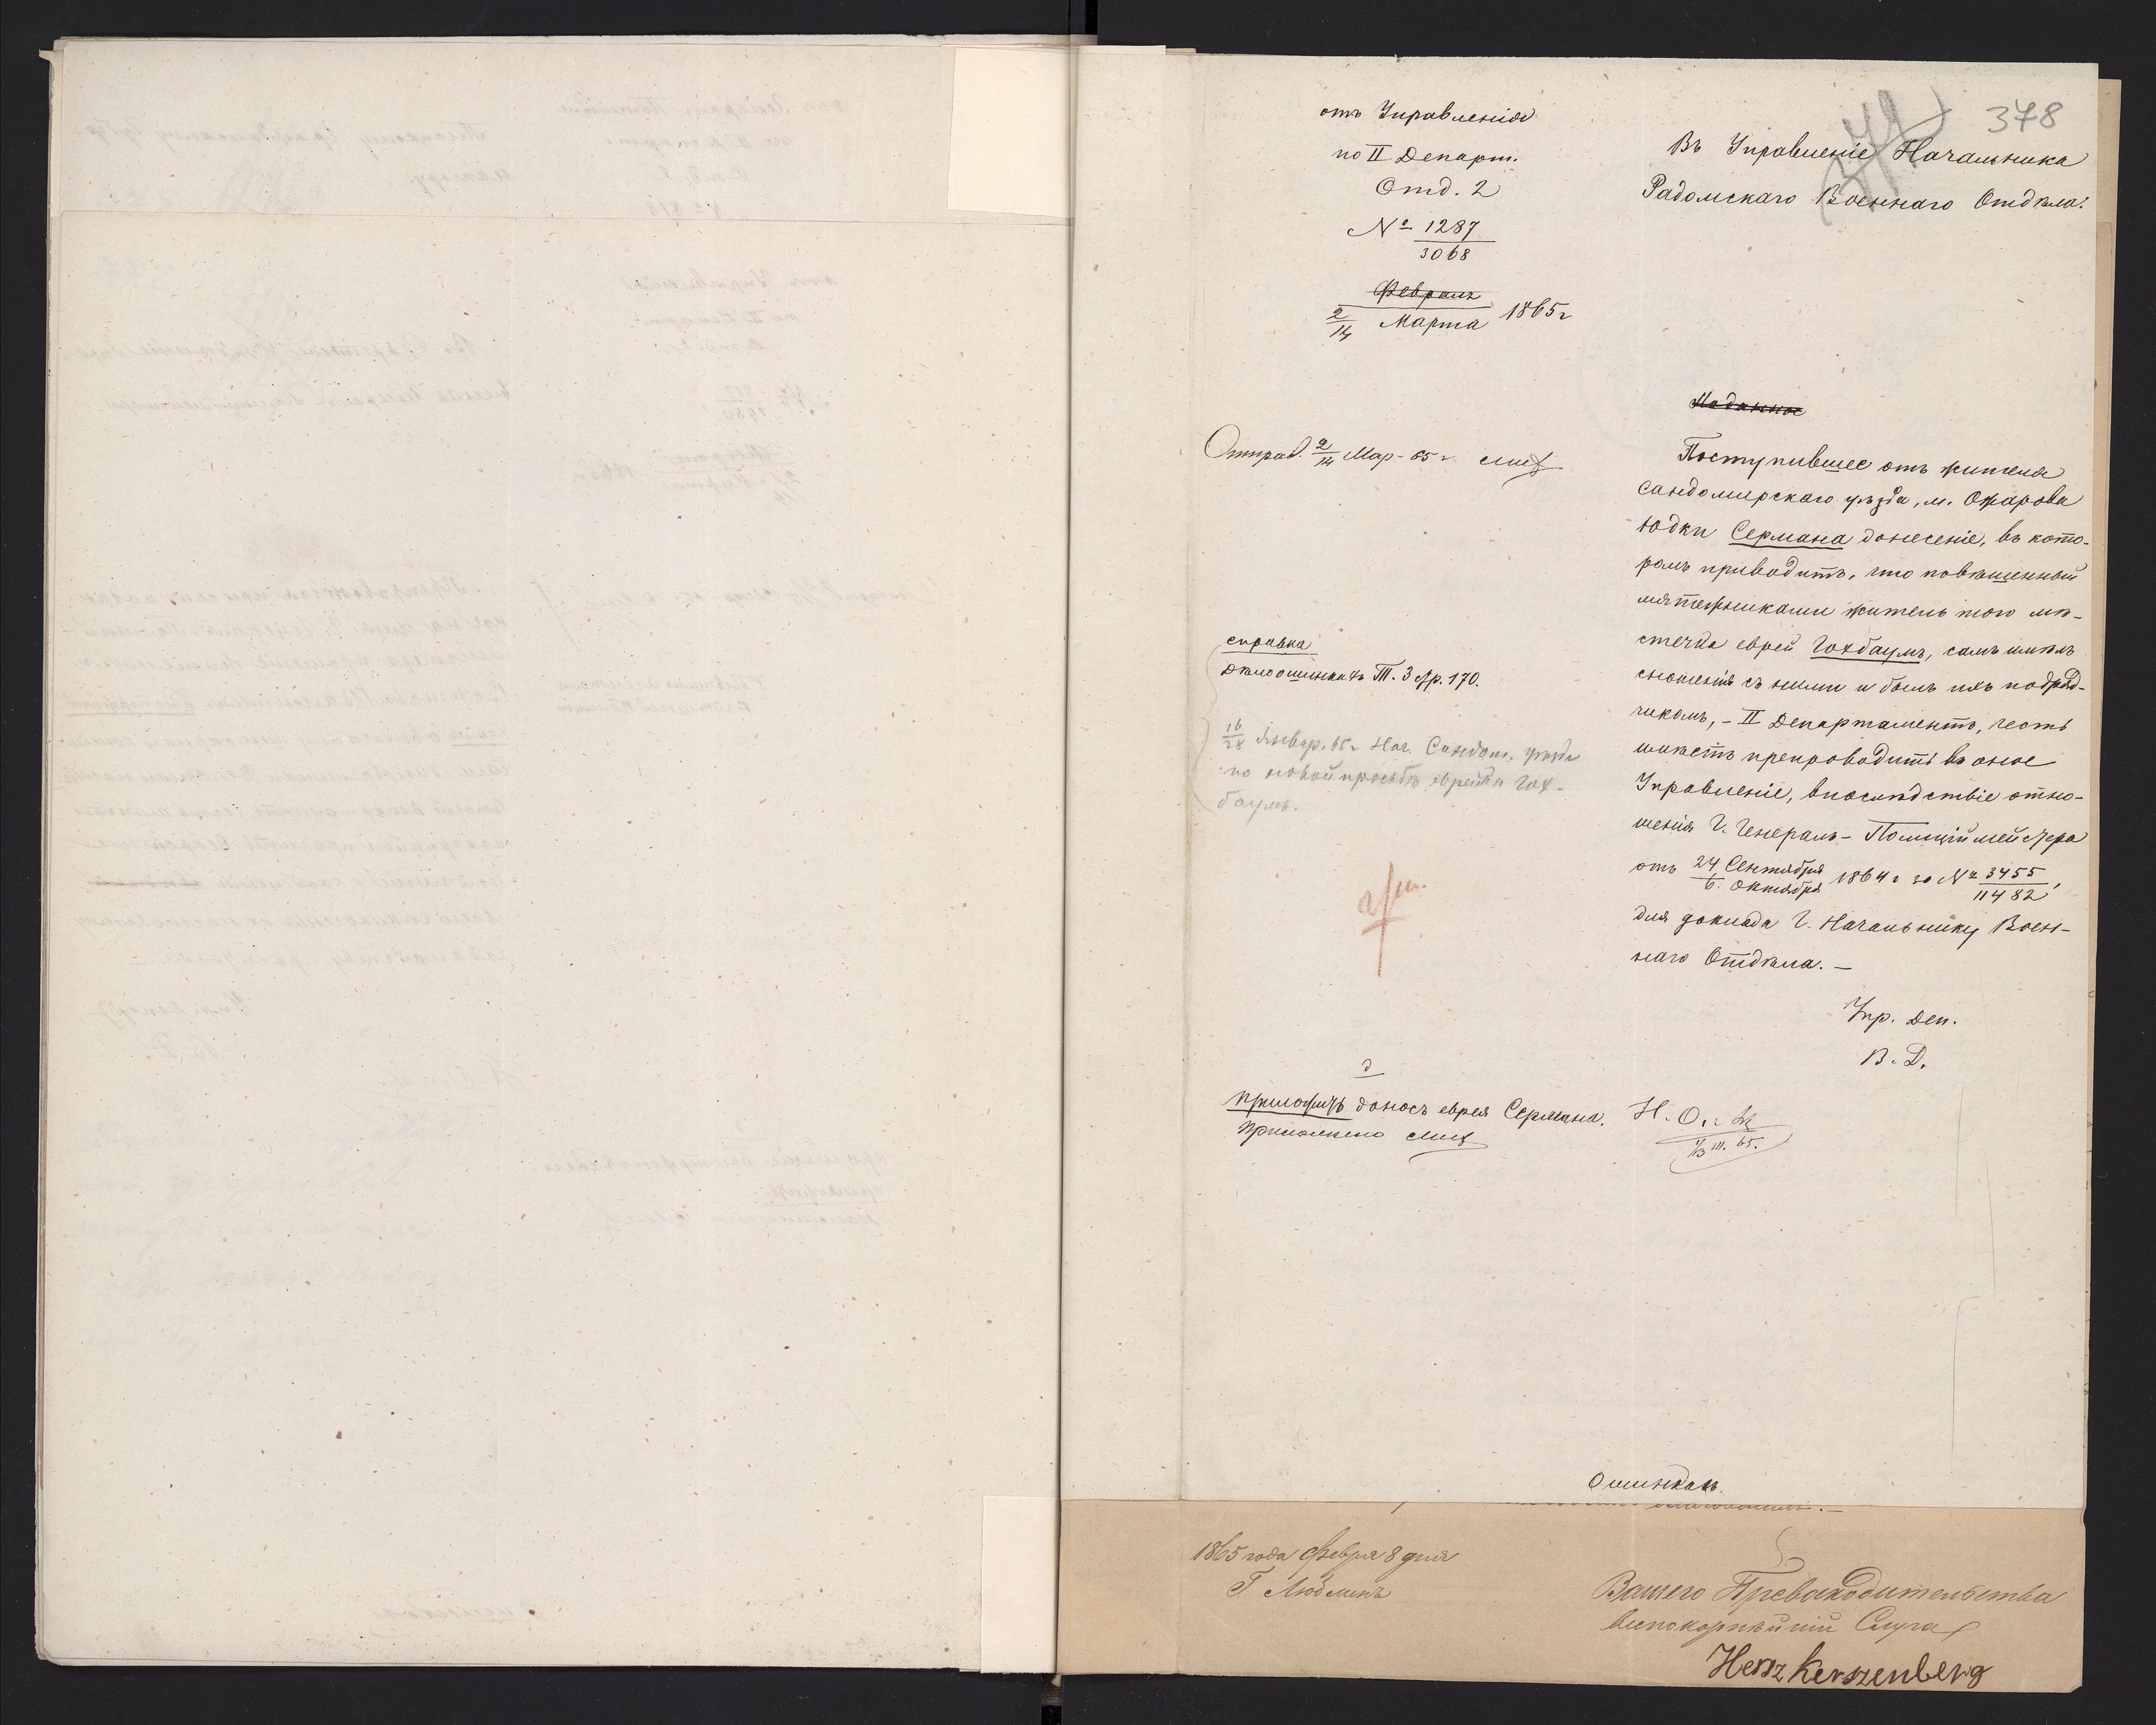 378
отъ Управленія
по II Департ.
Отд. 2
№ 1287
3068
Февраль
2/14 Марта 1865 г
Въ Управленіе Начальника
Радомскаго Военнаго Отдѣла.
Отправ. 2/14 Мар- 65 г
Поданное
Поступившее отъ жителя
Сандомирскаго уѣзда, м. Ожарова
Юдки Сермана донесеніе, въ кото-
ромъ приводитъ, что повѣшенный
мятежниками житель того мѣ-
стечка еврей Гохбаумъ, самъ имѣлъ
сношенія съ ними и былъ ихъ подряд-
чикомъ, - II Департаментъ, честь
имѣетъ препроводить въ оное
Управленіе, впослѣдствіе отно-
шенія Г. Генералъ-Полиціймейстера
отъ 24 Сентября / 6 Октября 1864 г за № 3455 / 11482,
для доклада Г. Начальнику Воен-
наго Отдѣла. —
Упр. Деп.
В. Д.
справка
Дѣло о шинкахъ Т. 3 стр. 170.
16/28 Январ. 65 г Нач. Сандом. уѣзда
по новой просьбѣ еврейки Гох-
баумъ.
приложить доносъ еврея Сермана.
Приложено
Н. О.
1/13 III. 65.
О шинкахъ
1865 года Февря 8 дня
Г Люблинъ
Вашего Превосходительства
Всепокорнѣйшій Слуга
Hersz Kerszenberg